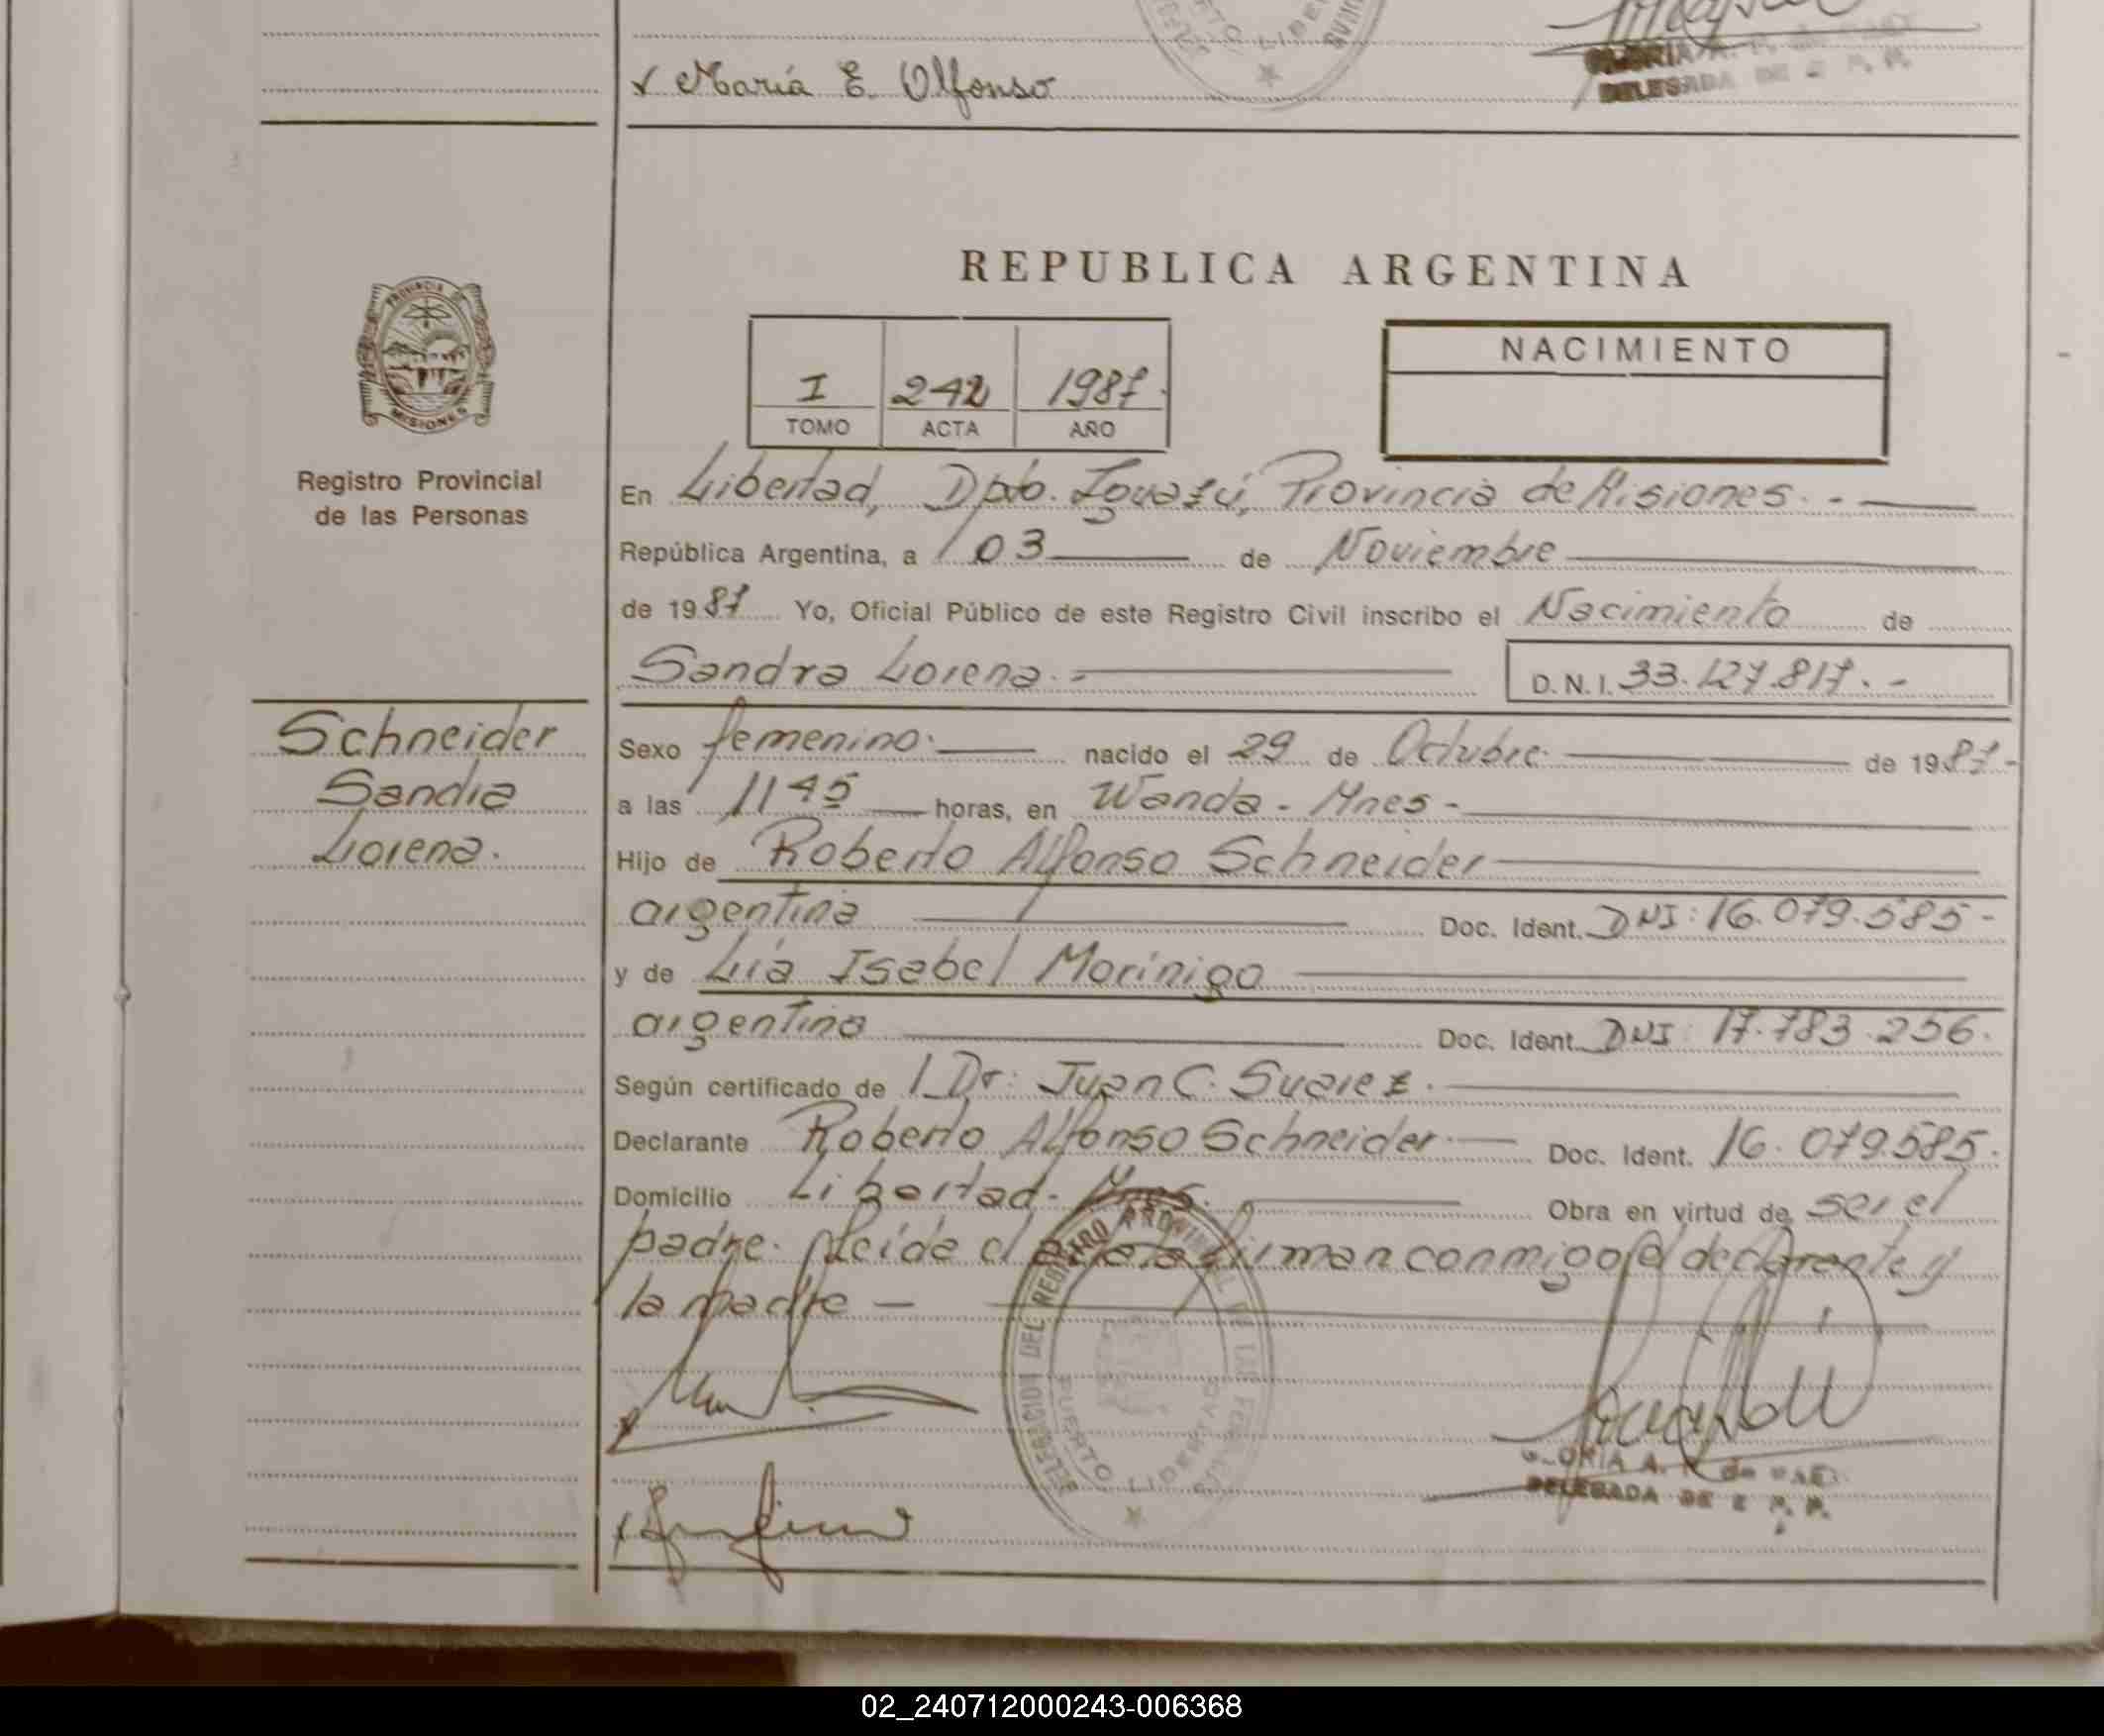 María E. Olfonso
DELEGADA DE
REPUBLICA ARGENTINA
PROVINCIA DE
MISIONES
I 242 1987.
TOMO ACTA AÑO
NACIMIENTO
Registro Provincial
de las Personas
En Libertad, Dpto. Iguazú, Provincia de Misiones. -
República Argentina, a 03 de Noviembre
de 1987 Yo, Oficial Público de este Registro Civil inscribo el Nacimiento de
Sandra Lorena. - D.N.I. 33.127.817. -
Schneider
Sandra
Lorena.
Sexo femenino. nacido el 29 de Octubre. de 1987-
a las 1145 horas, en Wanda - Mnes -
Hijo de Roberto Alfonso Schneider
argentina Doc. Ident. DNI: 16.079.585-
y de Lia Isabel Morínigo
argentina Doc. Ident. DNI: 17.783.256.
Según certificado de Dr: Juan C. Suarez.
Declarante Roberto Alfonso Schneider. Doc. Ident. 16.079.585.
Domicilio Libertad - Mnes. Obra en virtud de ser el
padre. Leída el acta la firman conmigo el declarante y
la madre —
DELEGACION DEL REGISTRO PROVINCIAL DE LAS PERSONAS
PUERTO LIBERTAD
GLORIA A.
DELEGADA DE
02_240712000243-006368